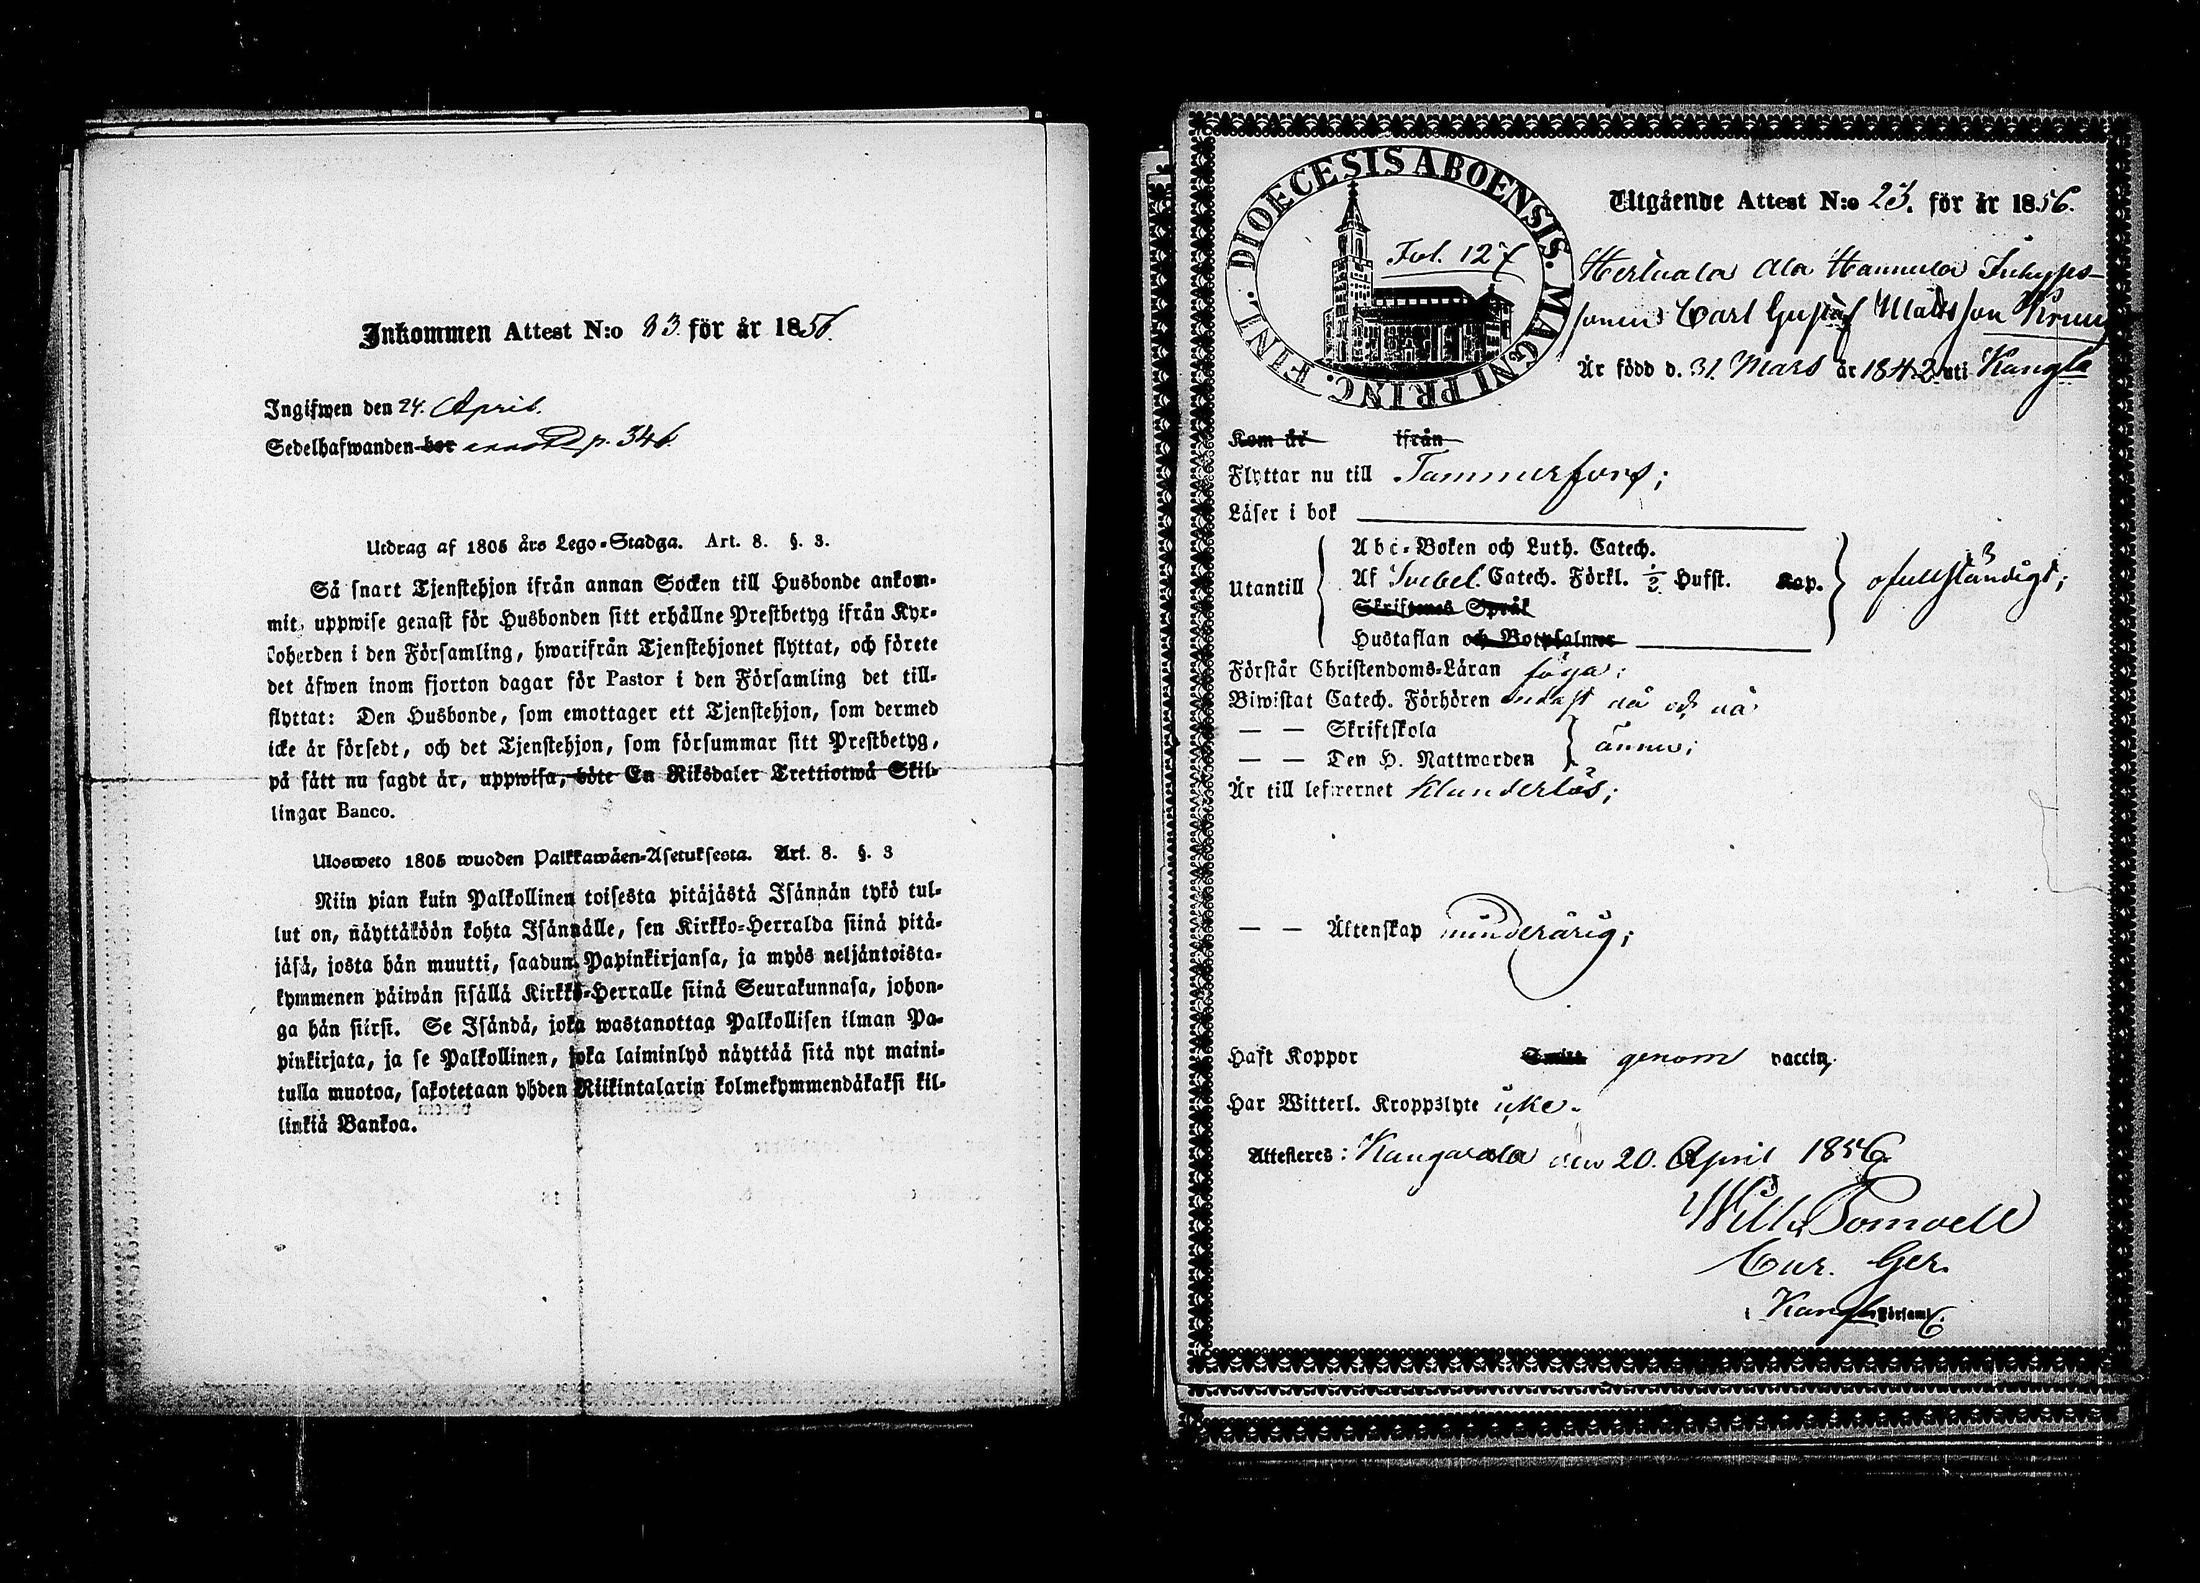 Inkommen Attest N:o 83. för år 1856.
Ingifwen den 24. April.
Sedelhafwanden bor annot. p. 346.
Utdrag af 1805 års Lego-Stadga. Art. 8. §. 3.
Så snart Tjenstehjon ifrån annan Socken till Husbonde ankom-
mit, uppwise genast för Husbonden sitt erhållne Prestbetyg ifrån Kyr-
koherden i den Församling, hwarifrån Tjenstehjonet flyttat, och förete
det äfwen inom fjorton dagar för Pastor i den Församling det till-
flyttat: Den Husbonde, som emottager ett Tjenstehjon, som dermed
icke är försedt, och det Tjenstehjon, som försummar sitt Prestbetyg,
på sätt nu sagdt är, uppwisa, böte En Riksdaler Trettiotwå Skil-
lingar Banco.
Ulosweto 1805 wuoden Palkkawäen-Asetuksesta. Art. 8. §. 3
Niin pian kuin Palkollinen toisesta pitäjästä Isännän tykö tul-
lut on, näyttäköön kohta Isännälle, sen Kirkko-Herralda siinä pitä-
jäsä, josta hän muutti, saadun Papinkirjansa, ja myös neljäntoista-
kymmenen päiwän sisällä Kirkko-Herralle siinä Seurakunnasa, johon-
ga hän siirsi. Se Isändä, joka wastanottaa Palkollisen ilman Pa-
pinkirjata, ja se Palkollinen, joka laiminlyö näyttää sitä nyt maini-
tulla muotoa, sakotetaan yhden Riikintalarin kolmekymmendäkaksi kil-
linkiä Bankoa.
DIOECESIS ABOENSIS. MAGNI PRINC. FINL.
Fol. 127
Utgående Attest N:o 23. för år 1856.
Hertuala Ala Hannula Inhyses-
sonen Carl Gustaf Matts son Kruu
Är född d. 31. Mars år 1842 uti Kangla
Kom år ifrån
Flyttar nu till Tammerfors;
Läser i bok
Utantill
Abc-Boken och Luth. Catech.
Af Svebel. Catech. Förkl. 1/2 Hufst. Kap.
Skriftenes Språk
Hustaflan och Botpsalmer
ofullständigt;
Förstår Christendoms-Läran föga;
Biwistat Catech. Förhören endast då och då
— — Skriftskola
— — Den H. Nattwarden
ännu;
Är till lefwernet klanderlös;
— — Äktenskap minderårig;
Haft Koppor Smitta genom vaccin,
Har Witterl. Kroppslyte icke.
Attesteras: Kangasala den 20. April 1856
Wilh. Tomoell
Cur. Ger.
i Kangl. Församl.